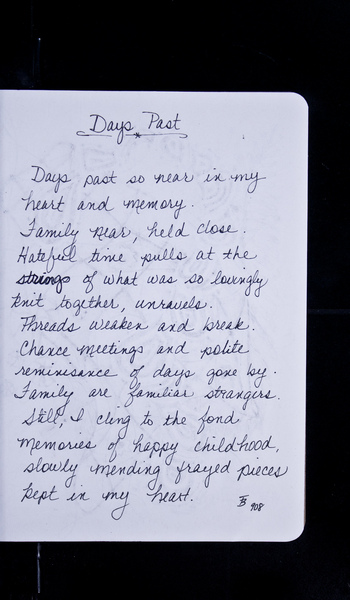 Days Past
Days past so near in my
heart and memory.
Family near, held close.
Hateful time pulls at the
strings of what was so lovingly
knit together, unravels.
Threads weaken and break.
Chance meetings and polite
reminisance of days gone by.
Family are familiar strangers.
Still, I cling to the fond
memories of happy childhood,
slowly mending frayed pieces
kept in my heart.
908